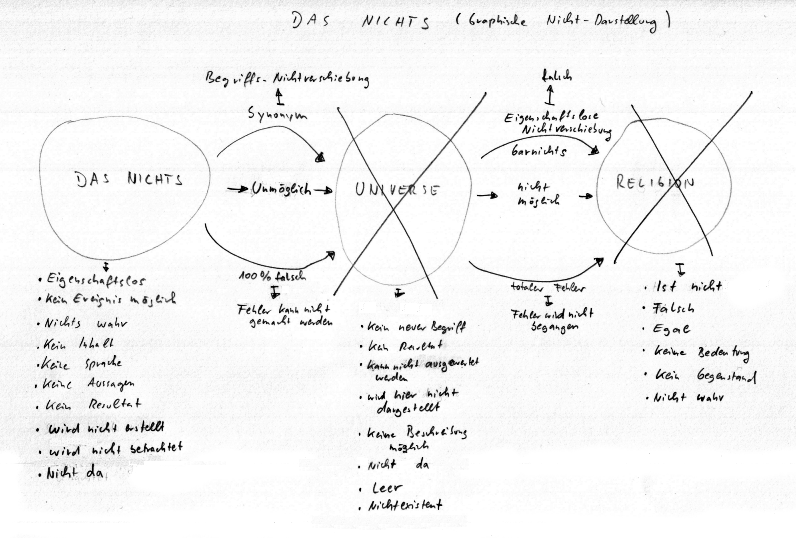 DAS NICHTS (Graphische Nicht-Darstellung)
Begriffs-Nichtverschiebung
Synonym
falsch
Eigenschaftslose
Nichtverschiebung
Garnichts
DAS NICHTS
Unmöglich
UNIVERSE
nicht
möglich
RELIGION
100% falsch
Fehler kann nicht
gemacht werden
totaler Fehler
Fehler wird nicht
begangen
• Eigenschaftslos
• Kein Ereignis möglich
• Nichts wahr
• Kein Inhalt
• Keine Sprache
• Keine Aussagen
• Kein Resultat
• wird nicht erstellt
• wird nicht betrachtet
• Nicht da
• Kein neuer Begriff
• Kein Resultat
• Kann nicht ausgewertet
werden
• wird hier nicht
dargestellt
• Keine Beschreibung
möglich
• Nicht da
• Leer
• Nichtexistent
• Ist nicht
• Falsch
• Egal
• Keine Bedeutung
• Kein Gegenstand
• Nicht wahr